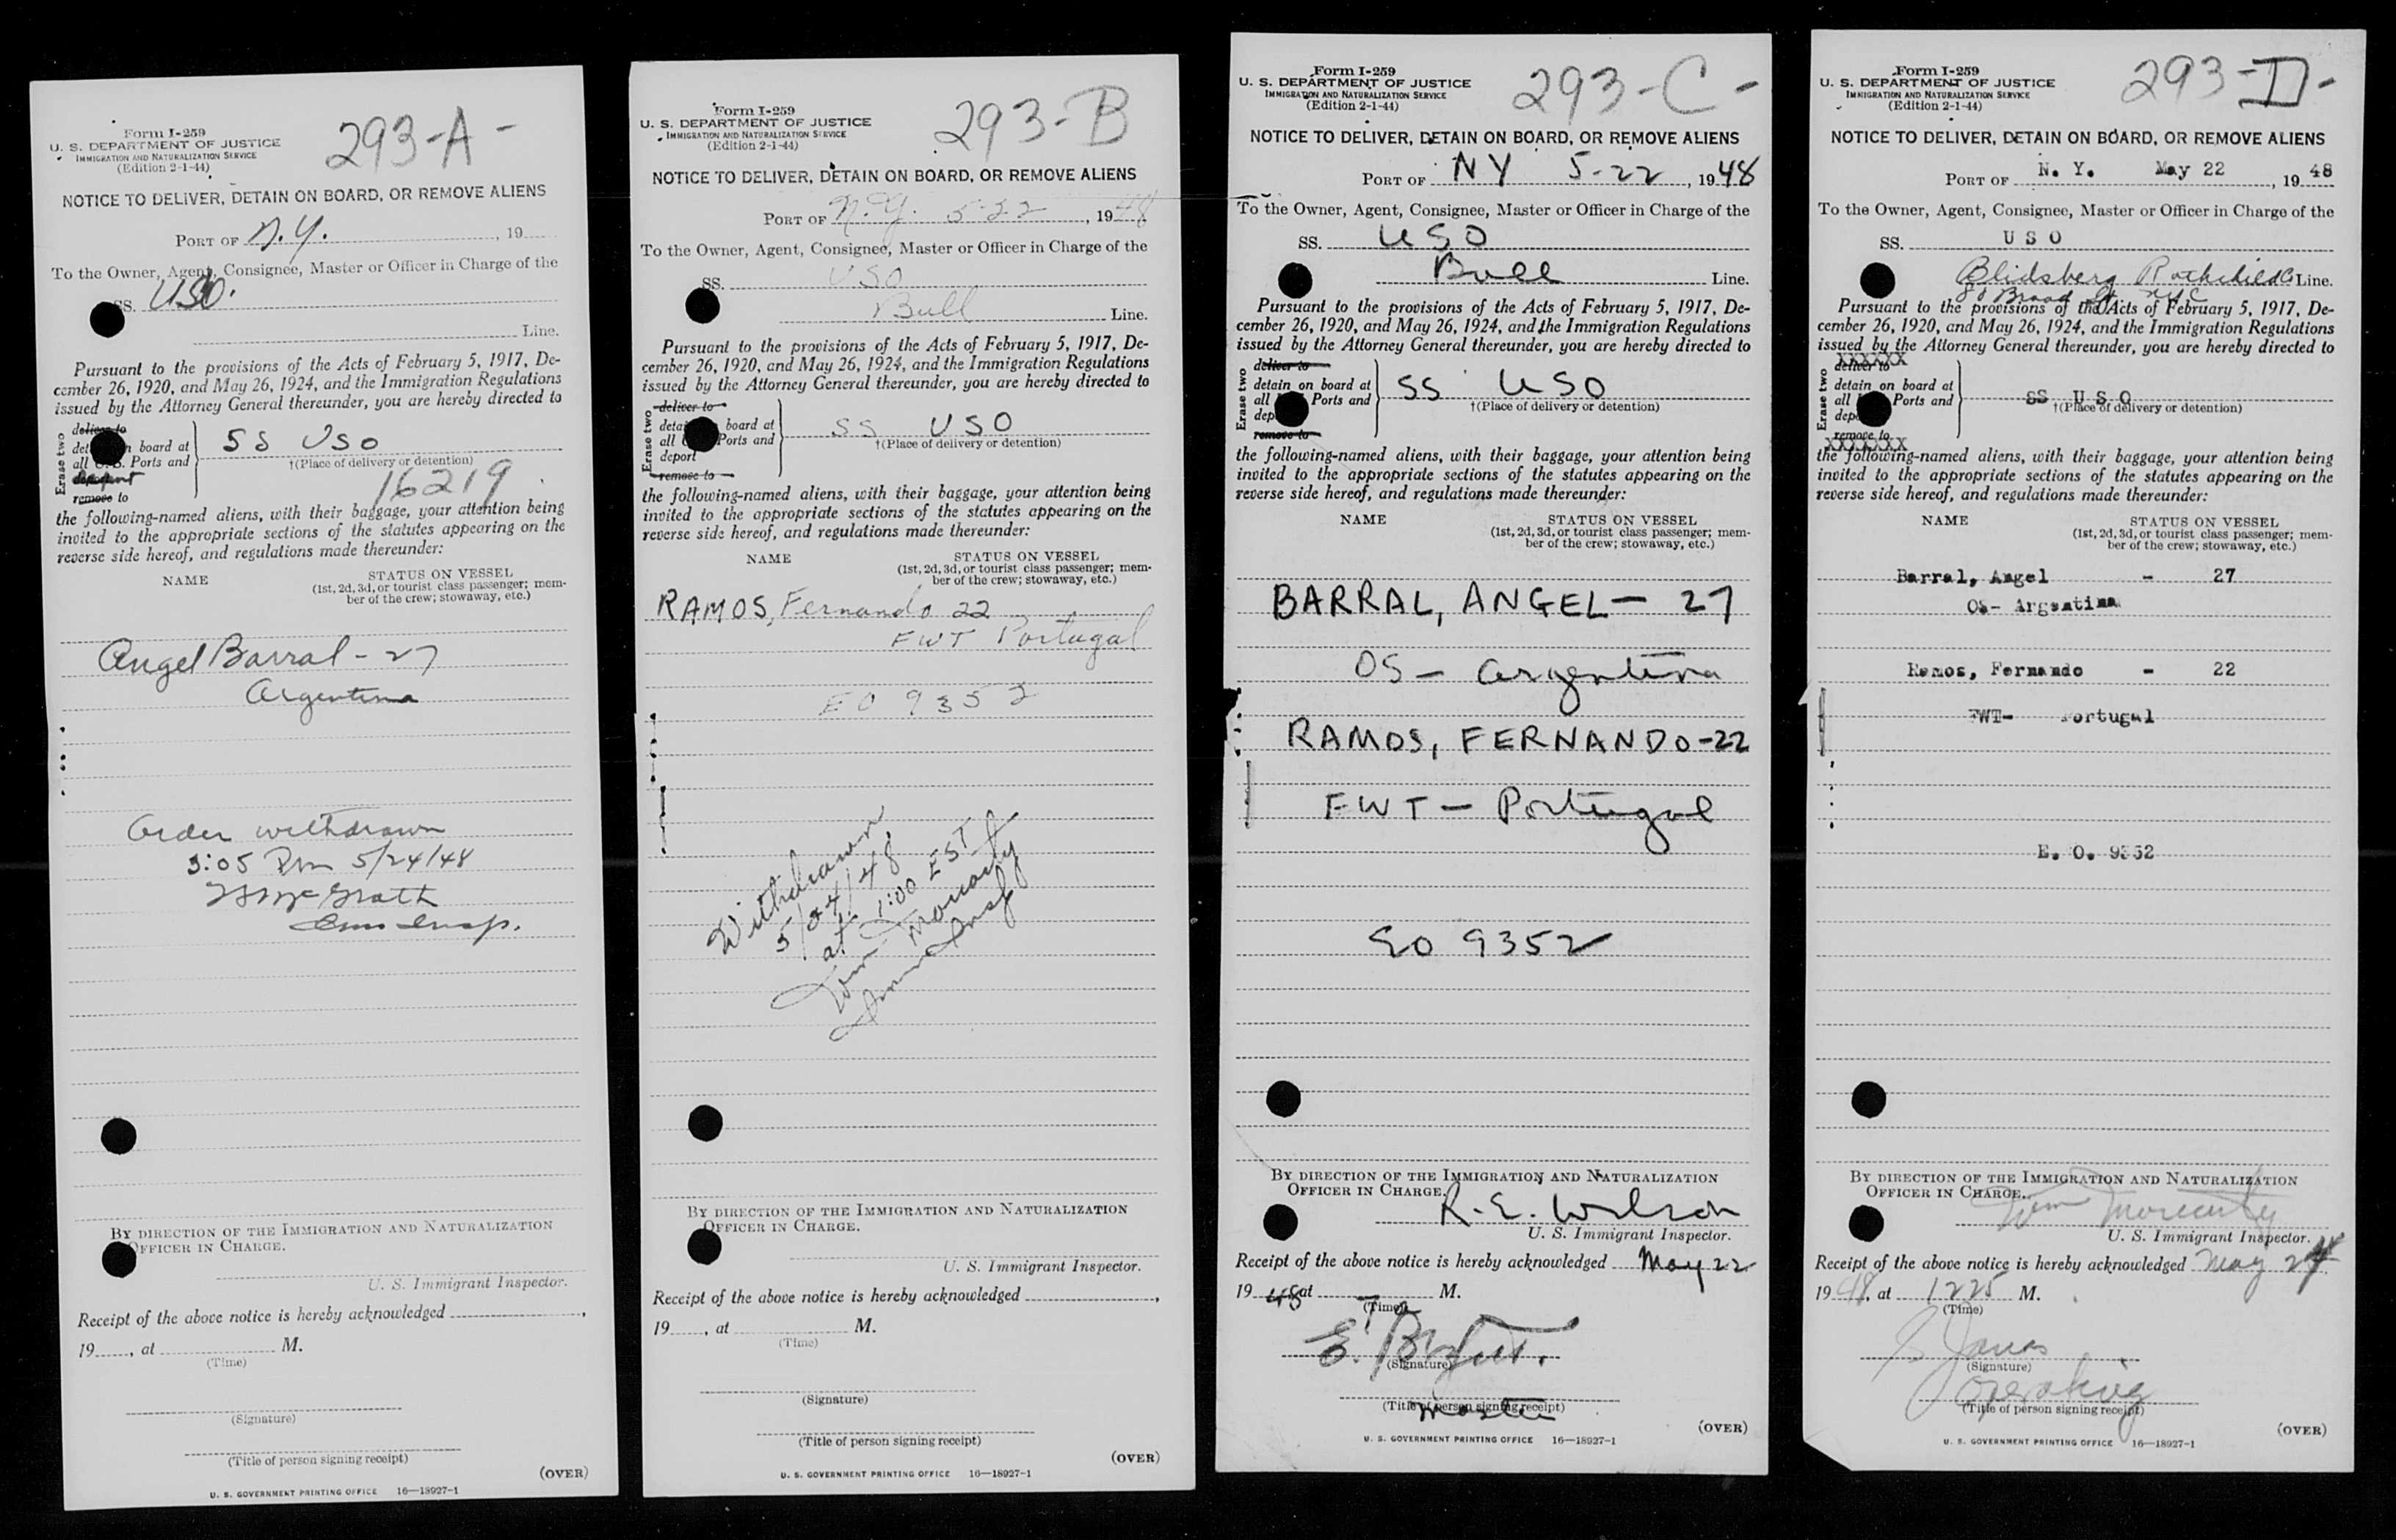 Form I-259
U. S. DEPARTMENT OF JUSTICE
IMMIGRATION AND NATURALIZATION SERVICE
(Edition 2-1-44)
293-A-
NOTICE TO DELIVER, DETAIN ON BOARD, OR REMOVE ALIENS
PORT OF N.Y. , 19
To the Owner, Agent, Consignee, Master or Officer in Charge of the
SS. USO.
Line.
Pursuant to the provisions of the Acts of February 5, 1917, De-
cember 26, 1920, and May 26, 1924, and the Immigration Regulations
issued by the Attorney General thereunder, you are hereby directed to
Erase two
deliver to
board at
all Ports and
remove to
SS USO
†(Place of delivery or detention)
16219
the following-named aliens, with their baggage, your attention being
invited to the appropriate sections of the statutes appearing on the
reverse side hereof, and regulations made thereunder:
NAME STATUS ON VESSEL
(1st, 2d, 3d, or tourist class passenger; mem-
ber of the crew; stowaway, etc.)
Angel Barral - 27
Argentina
Order withdrawn
3:05 Pm 5/24/48
McGrath
Imm Insp.
BY DIRECTION OF THE IMMIGRATION AND NATURALIZATION
OFFICER IN CHARGE.
U. S. Immigrant Inspector.
Receipt of the above notice is hereby acknowledged ,
19 , at M.
(Time)
(Signature)
(Title of person signing receipt)
(OVER)
U. S. GOVERNMENT PRINTING OFFICE 16—18927-1
Form I-259
U. S. DEPARTMENT OF JUSTICE
IMMIGRATION AND NATURALIZATION SERVICE
(Edition 2-1-44)
293-B
NOTICE TO DELIVER, DETAIN ON BOARD, OR REMOVE ALIENS
PORT OF N.Y. 5-22 , 19 48
To the Owner, Agent, Consignee, Master or Officer in Charge of the
SS. USO
Bull Line.
Pursuant to the provisions of the Acts of February 5, 1917, De-
cember 26, 1920, and May 26, 1924, and the Immigration Regulations
issued by the Attorney General thereunder, you are hereby directed to
Erase two
deliver to
board at
all Ports and
deport
remove to
SS USO
†(Place of delivery or detention)
the following-named aliens, with their baggage, your attention being
invited to the appropriate sections of the statutes appearing on the
reverse side hereof, and regulations made thereunder:
NAME STATUS ON VESSEL
(1st, 2d, 3d, or tourist class passenger; mem-
ber of the crew; stowaway, etc.)
RAMOS, Fernando 22
FWT Portugal
EO 9352
Withdrawn
5/24/48
at 1:00 EST
Wm Moriarty
Imm Insp
BY DIRECTION OF THE IMMIGRATION AND NATURALIZATION
OFFICER IN CHARGE.
U. S. Immigrant Inspector.
Receipt of the above notice is hereby acknowledged ,
19 , at M.
(Time)
(Signature)
(Title of person signing receipt)
(OVER)
U. S. GOVERNMENT PRINTING OFFICE 16—18927-1
Form I-259
U. S. DEPARTMENT OF JUSTICE
IMMIGRATION AND NATURALIZATION SERVICE
(Edition 2-1-44)
293-C-
NOTICE TO DELIVER, DETAIN ON BOARD, OR REMOVE ALIENS
PORT OF NY 5-22 , 19 48
To the Owner, Agent, Consignee, Master or Officer in Charge of the
SS. USO
Bull Line.
Pursuant to the provisions of the Acts of February 5, 1917, De-
cember 26, 1920, and May 26, 1924, and the Immigration Regulations
issued by the Attorney General thereunder, you are hereby directed to
Erase two
deliver to
detain on board at
all Ports and
remove to
SS USO
†(Place of delivery or detention)
the following-named aliens, with their baggage, your attention being
invited to the appropriate sections of the statutes appearing on the
reverse side hereof, and regulations made thereunder:
NAME STATUS ON VESSEL
(1st, 2d, 3d, or tourist class passenger; mem-
ber of the crew; stowaway, etc.)
BARRAL, ANGEL — 27
OS — Argentina
RAMOS, FERNANDO-22
FWT — Portugal
EO 9352
BY DIRECTION OF THE IMMIGRATION AND NATURALIZATION
OFFICER IN CHARGE.
R. E. Wilson
U. S. Immigrant Inspector.
Receipt of the above notice is hereby acknowledged May 22
19 48 at 7a M.
(Time)
E.
(Signature)
Master
(Title of person signing receipt)
(OVER)
U. S. GOVERNMENT PRINTING OFFICE 16—18927-1
Form I-259
U. S. DEPARTMENT OF JUSTICE
IMMIGRATION AND NATURALIZATION SERVICE
(Edition 2-1-44)
293-D-
NOTICE TO DELIVER, DETAIN ON BOARD, OR REMOVE ALIENS
PORT OF N. Y. May 22 , 19 48
To the Owner, Agent, Consignee, Master or Officer in Charge of the
SS. U S O
Blidsberg Rothchild Co Line.
80 Broad St NYC
Pursuant to the provisions of the Acts of February 5, 1917, De-
cember 26, 1920, and May 26, 1924, and the Immigration Regulations
issued by the Attorney General thereunder, you are hereby directed to
XXXXXX
Erase two
deliver to
detain on board at
all Ports and
remove to
XXXXXXX
SS U S O
†(Place of delivery or detention)
the following-named aliens, with their baggage, your attention being
invited to the appropriate sections of the statutes appearing on the
reverse side hereof, and regulations made thereunder:
NAME STATUS ON VESSEL
(1st, 2d, 3d, or tourist class passenger; mem-
ber of the crew; stowaway, etc.)
Barral, Angel - 27
OS- Argentina
Ramos, Fernando - 22
FWT- Portugal
E. O. 9352
BY DIRECTION OF THE IMMIGRATION AND NATURALIZATION
OFFICER IN CHARGE.
Wm Moriarty
U. S. Immigrant Inspector.
Receipt of the above notice is hereby acknowledged May 24
19 48, at 1225 M.
(Time)
(Signature)
Operating
(Title of person signing receipt)
(OVER)
U. S. GOVERNMENT PRINTING OFFICE 16—18927-1